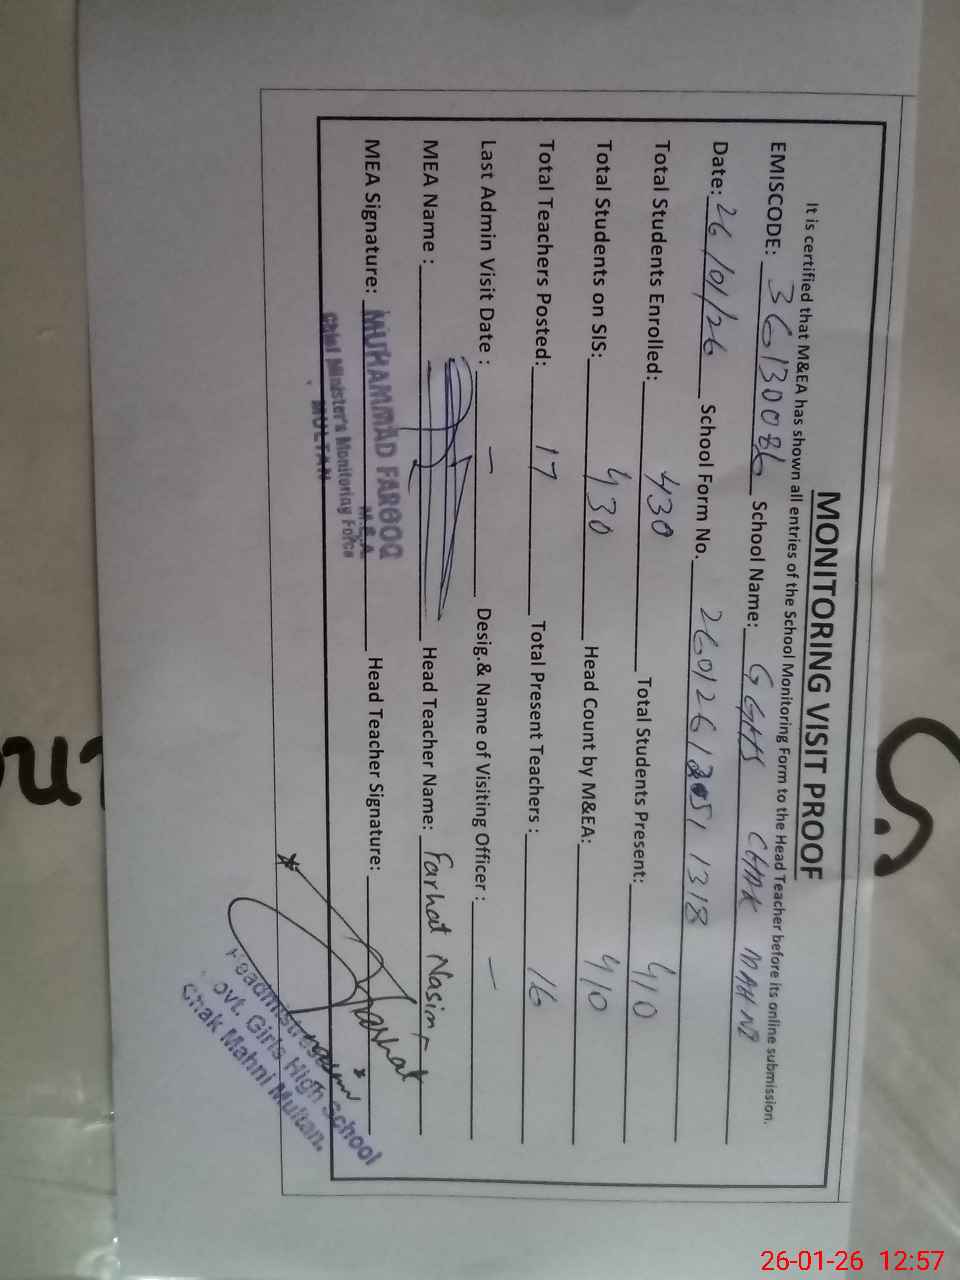 MONITORING VISIT PROOF
It is certified that M&EA has shown all entries of the School Monitoring Form to the Head Teacher before its online submission.
EMISCODE: 36130086 School Name: GGHS CHAK MAHNI
Date: 26/01/26 School Form No. 260126 1318
Total Students Enrolled: 430 Total Students Present: 410
Total Students on SIS: 430 Head Count by M&EA: 410
Total Teachers Posted: 17 Total Present Teachers : 16
Last Admin Visit Date : — Desig.& Name of Visiting Officer : —
MEA Name : Head Teacher Name: Farhat Nasim
MEA Signature: Head Teacher Signature: Farhat
MUHAMMAD FAROOQ
M.E.A
Chief Minister's Monitoring Force
MULTAN
Headmistress
Govt. Girls High School
Chak Mahni Multan.
26-01-26 12:57